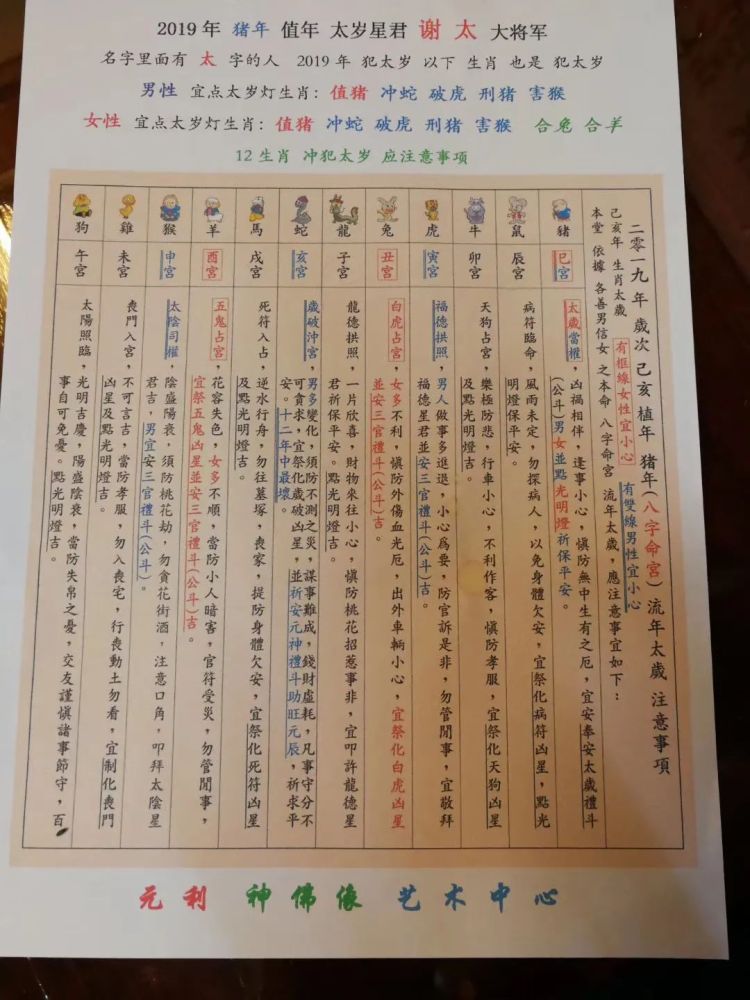 2019 年 猪年 值年 太岁星君 谢 太 大将军
名字里面有 太 字的人 2019 年 犯太岁 以下 生肖 也是 犯太岁
男性 宜点太岁灯生肖: 值猪 冲蛇 破虎 刑猪 害猴
女性 宜点太岁灯生肖: 值猪 冲蛇 破虎 刑猪 害猴 合兔 合羊
12 生肖 冲犯太岁 应注意事项
二零一九年 歲次 己亥 植年 猪年(八字命宮) 流年太歲 注意事項
己亥年 生肖太歲 有框線女性宜小心 有雙線男性宜小心
本堂 依據 各善男信女 之本命 八字命宮 流年太歲,應注意事宜如下:
豬
巳宮
太歲當權,凶禍相伴,逢事小心,慎防無中生有之厄,宜安奉安太歲禮斗
(公斗)男女並點光明燈祈保平安。
鼠
辰宮
病符臨命,風雨未定,勿探病人,以免身體欠安,宜祭化病符凶星,點光
明燈保平安。
牛
卯宮
天狗占宮,樂極防悲,行車小心,不利作客,慎防孝服,宜祭化天狗凶星
及點光明燈吉。
虎
寅宮
福德拱照,男人做事多進退,小心爲要,防官訴是非,勿管閒事,宜敬拜
福德星君並安三官禮斗(公斗)吉。
兔
丑宮
白虎占宮,女多不利,慎防外傷血光厄,出外車輛小心,宜祭化白虎凶星
並安三官禮斗(公斗)吉。
龍
子宮
龍德拱照,一片欣喜,財物來往小心,慎防桃花招惹事非,宜叩許龍德星
君祈保平安。點光明燈吉。
蛇
亥宮
歲破沖宮,男多變化,須防不測之災,謀事難成,錢財虛耗,凡事守分不
可貪求,宜祭化歲破凶星,並祈安元神禮斗助旺元辰,祈求平
安。十二年中最壞。
馬
戌宮
死符入占,逆水行舟,勿往墓塚,喪家,提防身體欠安,宜祭化死符凶星
及點光明燈吉。
羊
酉宮
五鬼占宮,花容失色,女多不順,當防小人暗害,官符受災,勿管閒事,
宜祭五鬼凶星並安三官禮斗(公斗)吉。
猴
申宮
太陰司權,陰盛陽衰,須防桃花劫,勿貪花街酒,注意口角,叩拜太陰星
君吉,男宜安三官禮斗(公斗)。
雞
未宮
喪門入宮,不可言吉,當防孝服,勿入喪宅,行喪動土勿看,宜制化喪門
凶星及點光明燈吉。
狗
午宮
太陽照臨,光明吉慶,陽盛陰衰,當防失帛之憂,交友謹慎諸事節守,百
事自可免憂。點光明燈吉。
元利 神佛像 艺术中心